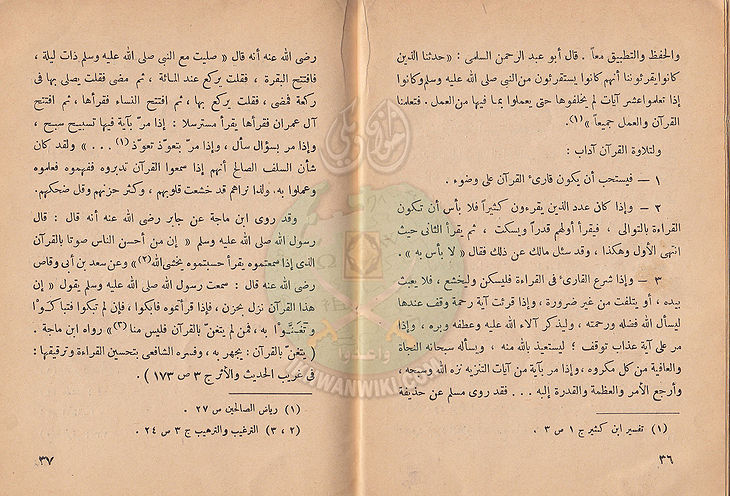 والحفظ والتطبيق معاً . قال أبو عبد الرحمن السلمى : « حدثنا الذين
كانوا يقرئوننا أنهم كانوا يستقرئون من النبي صلى الله عليه وسلم وكانوا
إذا تعلموا عشر آيات لم يخلفوها حتى يعملوا بما فيها من العمل . فتعلمنا
القرآن والعمل جميعاً » (١) .
ولتلاوة القرآن آداب :
١ — فيستحب أن يكون قارئ القرآن على وضوء .
٢ — وإذا كان عدد الذين يقرءون كثيراً فلا بأس أن تكون
القراءة بالتوالى ، فيقرأ أولهم قدراً ويسكت ، ثم يقرأ الثانى حيث
انتهى الأول وهكذا ، وقد سئل مالك عن ذلك فقال « لا بأس به » .
٣ — وإذا شرع القارئ فى القراءة فليسكن وليخشع ، فلا يعبث
بيده ، أو يتلفت من غير ضرورة ، وإذا قرئت آية رحمة وقف عندها
ليسأل الله فضله ورحمته ، وليذكر آلاء الله عليه وعطفه وبره ، وإذا
مر على آية عذاب توقف ؛ ليستعيذ بالله منه ، ويسأله سبحانه النجاة
والعافية من كل مكروه ، وإذا مر بآية من آيات التنزيه نزه الله وسبحه ،
وأرجع الأمر والعظمة والقدرة إليه ... فقد روى مسلم عن حذيفة
(١) تفسير ابن كثير ج ١ ص ٣ .
٣٦
رضى الله عنه أنه قال « صليت مع النبي صلى الله عليه وسلم ذات ليلة ،
فافتتح البقرة ، فقلت يركع عند المائة ، ثم مضى فقلت يصلى بها فى
ركعة فمضى ، فقلت يركع بها ، ثم افتتح النساء فقرأها ، ثم افتتح
آل عمران فقرأها يقرأ مسترسلا : إذا مر بآية فيها تسبيح سبح ،
وإذا مر بسؤال سأل ، وإذا مر بتعوّذ تعوّذ (١) ... » ولقد كان
شأن السلف الصالح أنهم إذا سمعوا القرآن تدبروه ففهموه فعلموه
وعملوا به . ولذا نراهم قد خشعت قلوبهم ، وكثر حزنهم وقل ضحكهم .
وقد روى ابن ماجة عن جابر رضى الله عنه أنه قال : قال
رسول الله صلى الله عليه وسلم « إن من أحسن الناس صوتا بالقرآن
الذى إذا سمعتموه يقرأ حسبتموه يخشى الله (٢) » وعن سعد بن أبى وقاص
رضى الله عنه قال : سمعت رسول الله صلى الله عليه وسلم يقول « إن
هذا القرآن نزل بحزن ، فإذا قرأتموه فابكوا ، فإن لم تبكوا فتباكَوْا
وتَغَنَّوْا به ، فمن لم يتغنّ بالقرآن فليس منا (٣) » رواه ابن ماجة .
( يتغنّ بالقرآن : يجهر به ، وفسره الشافعى بتحسين القراءة وترقيقها :
فى غريب الحديث والأثر ج ٣ ص ١٧٣ ) .
(١) رياض الصالحين ص ٢٧ .
(٢ ، ٣) الترغيب والترهيب ج ٣ ص ٢٤ .
٣٧
وأعدوا
IKHWANWIKI.COM